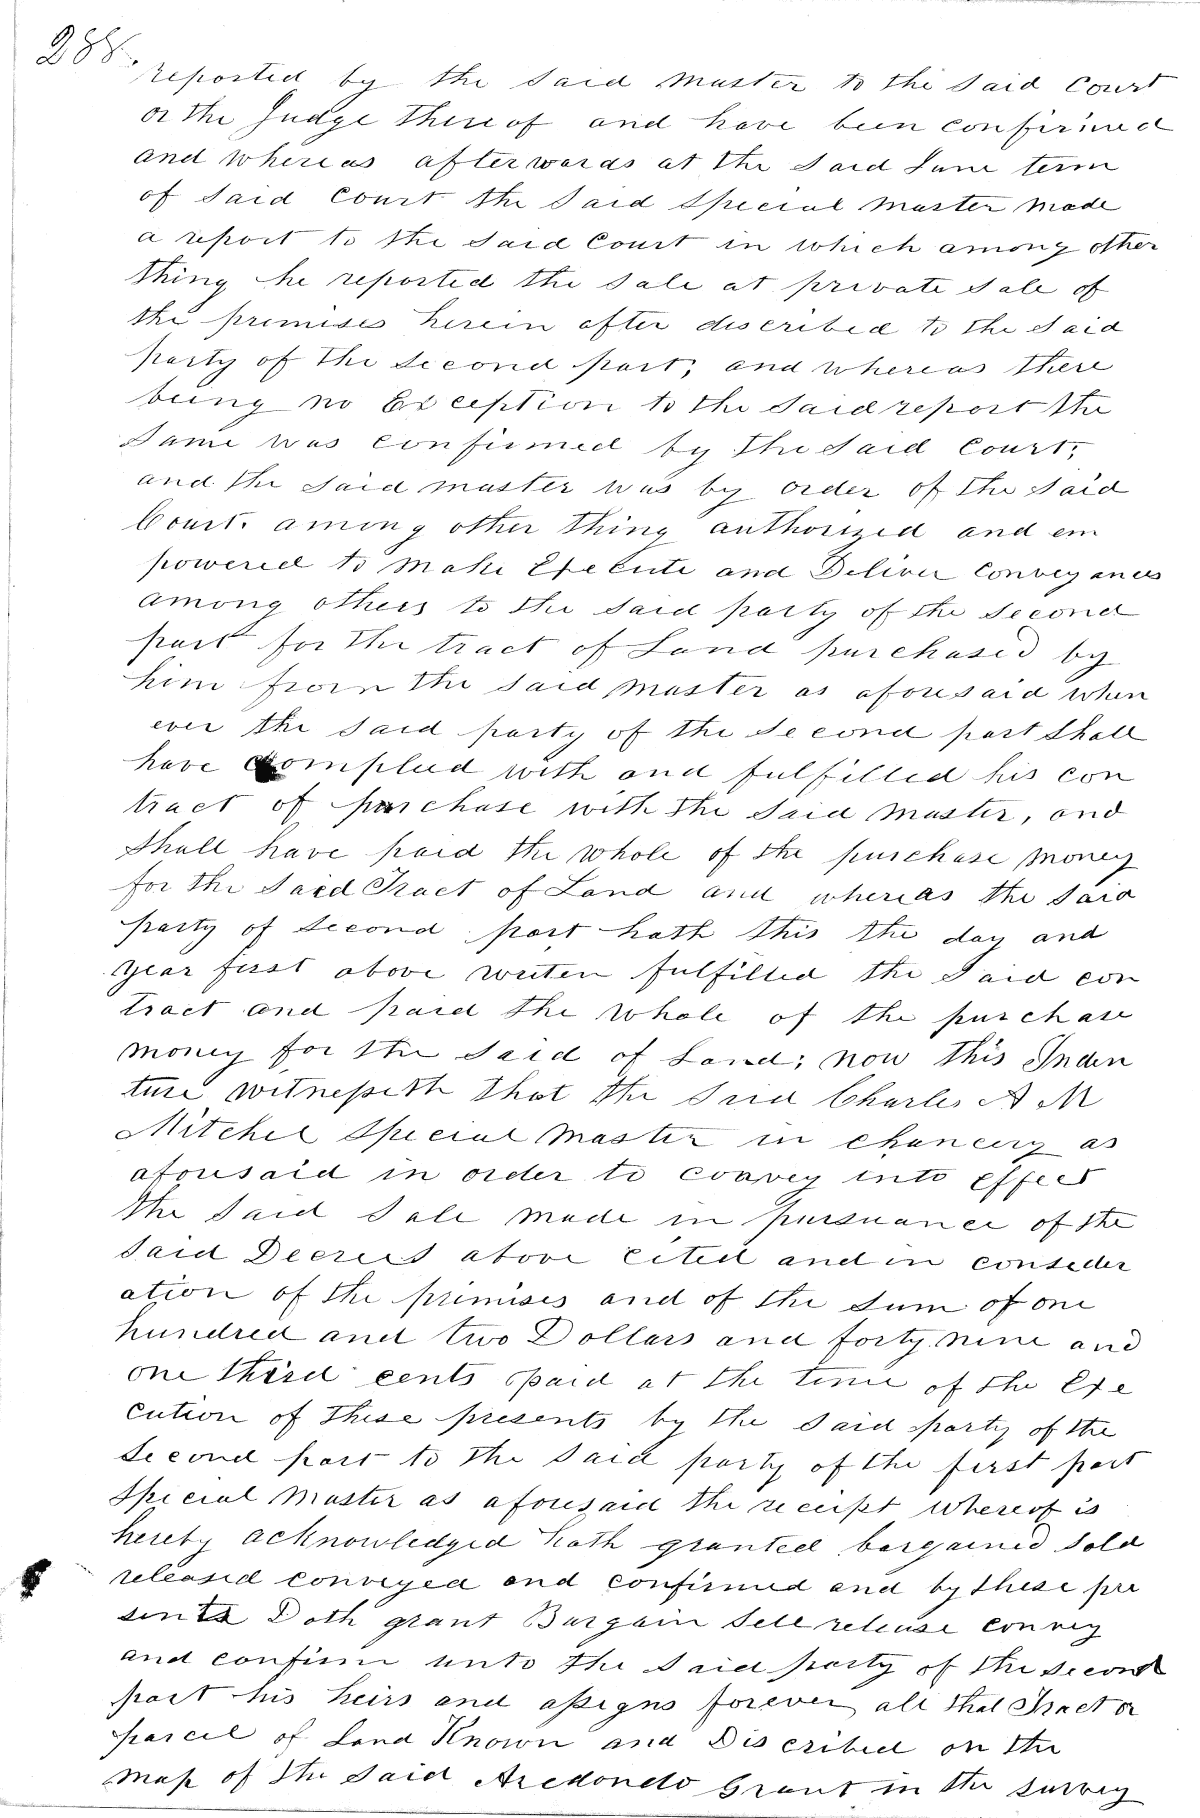 288.
reported by the said master to the said Court
or the Judge thereof and have been confirmed
and whereas afterwards at the said June term
of said Court the said special master made
a report to the said Court in which among other
thing he reported the sale at private sale of
the premises herein after discribed to the said
party of the second part; and whereas there
being no Exception to the said report the
same was confirmed by the said Court;
and the said master was by order of the said
Court. among other thing authorized and em
powered to make Execute and Deliver conveyances
among others to the said party of the second
part for the tract of Land purchased by
him from the said master as aforesaid when
ever the said party of the second part shall
have complied with and fulfilled his con
tract of purchase with the said master, and
shall have paid the whole of the purchase money
for the said Tract of Land and whereas the said
party of second part hath this the day and
year first above writen fulfilled the said con
tract and paid the whole of the purchase
money for the said of Land; now this Inden
ture witnesseth that the said Charles A M
Mitchel special master in chancery as
aforesaid in order to convey into effect
the said sale made in pursuance of the
said Decrees above cited and in consider
ation of the primises and of the sum of one
hundred and two Dollars and forty nine and
one third cents paid at the time of the Exe
cution of these presents by the said party of the
second part to the said party of the first part
special master as aforesaid the receipt whereof is
hereby acknowledged hath granted bargained sold
released conveyed and confirmed and by these pre
sents Doth grant Bargain sell release convey
and confirm unto the said party of the second
part his heirs and assigns forever all that Tract or
parcel of Land Known and Discribed on the
map of the said Aredondo Grant in the survey